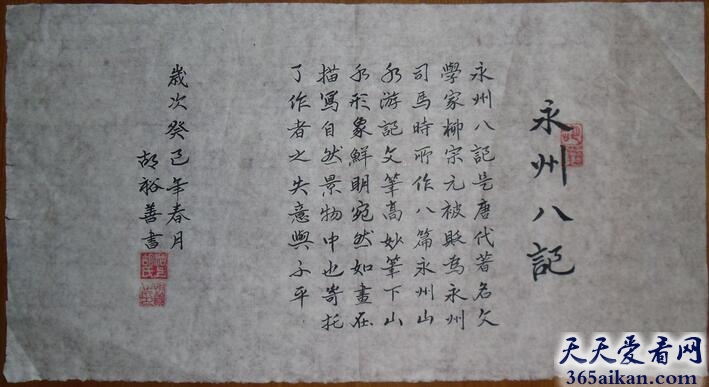 永州八記
永州八記是唐代著名文
學家柳宗元被貶為永州
司馬時所作八篇永州山
水游記文筆高妙筆下山
水形象鮮明宛然如畫在
描寫自然景物中也寄托
了作者之失意與不平
歲次癸巳年春月
胡裕善書
天天爱看网
365aikan.com